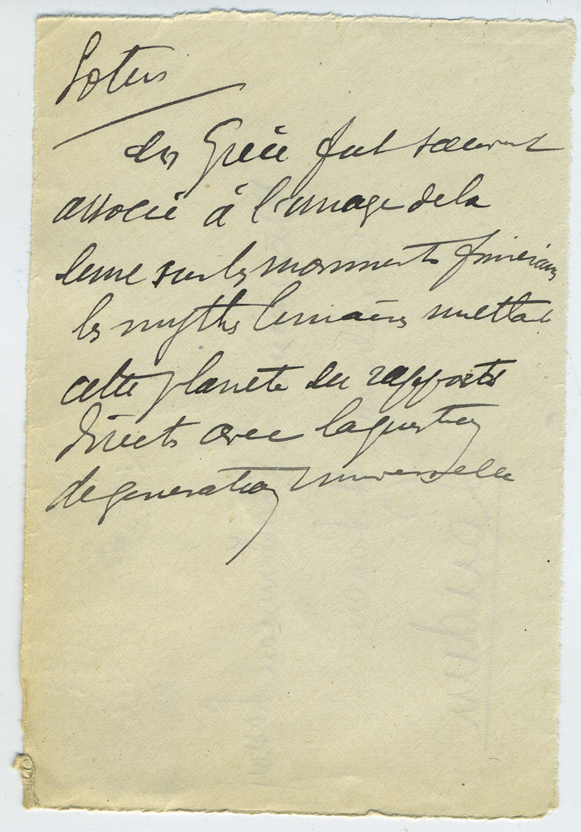 Lotus
en Grèce fut souvent
associé à l'image de la
lune sur les monuments funéraires
les mythes lunaires mettant
cette planète en rapports
directs avec la question
de generation universelle